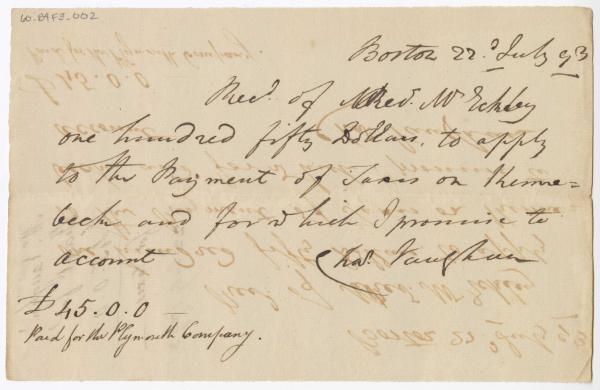 60.B9F3.002
Boston 22d July 93
Recd. of Revd. Mr Eckley
one hundred fifty Dollars, to apply
to the Payment of Taxes on Kenne=
beck and for which I promise to
account Chas. Vaughan
£45.0.0
Paid for the Plymouth Company.